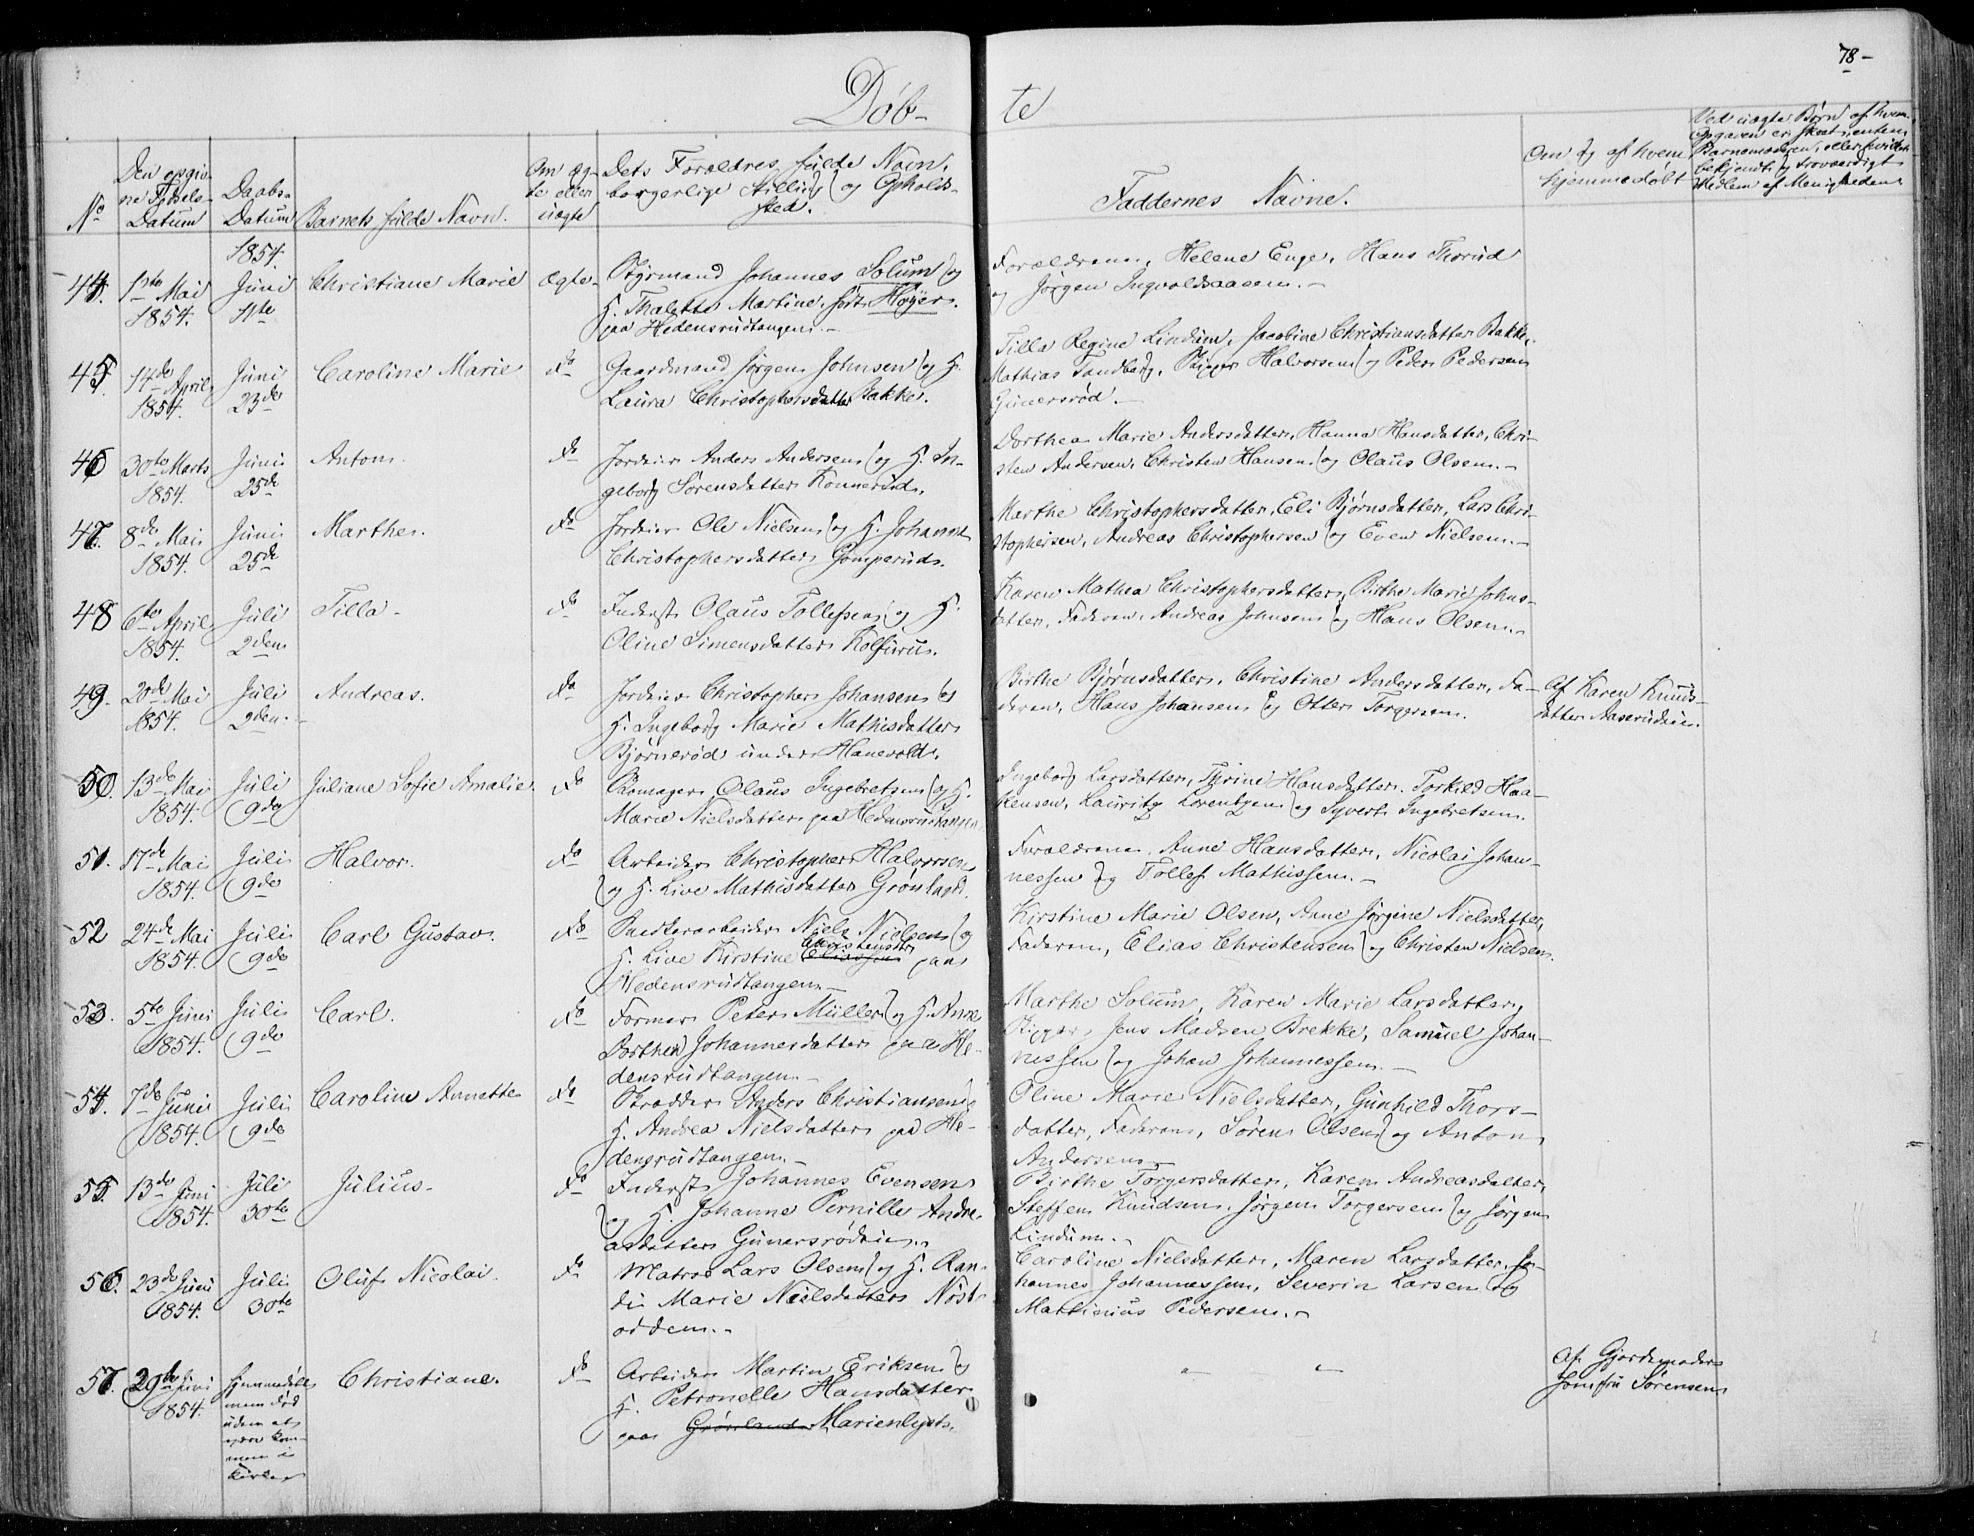 78-
Døb-
te
No
Den opgiv-
ne Fødsels-
Datum
Daabs-
Datum
Barnets fulde Navn.
Om æg-
te eller
uægte
Dets Forældres fulde Navn,
borgerlige Stilling og Opholds-
sted.
Faddernes Navne.
Om og af hvem
hjemmedøbt
Ved uægte Børn af hvem
Opgaven er skeet, enten
Barnemoderen, eller hvilket
bekjendt og troværdigt
Medlem af Menigheden
1854.
44. 1ste Mai
1854.
Juni
11te
Christiane Marie
Ægte.
Styrmand Johannes Solum og
H. Thalette Martine født Høyer.
paa Hedensrudtangen.-
Forældrene, Helene Enge, Hans Thorud
og Jørgen Ingvoldsaasen.-
45. 14de April
1854.
Juni
23de
Caroline Marie
do
Gaardmand Jørgen Johnsen og H.
Laura Christophersdatter Bakke.
Tilla Regine Lindum, Jacobine Christiansdatter Bakke,
Mathias Sandberg, Skipper Halvorsen og Peder Pedersen
Gunersrød.-
46 30te Marts
1854.
Juni
25de
Anton.
do
Jordeier Anders Andersen og H. In-
geborg Sørensdatter Konnerud.
Dorthea Marie Andersdatter, Hanna Hansdatter, Chri-
sten Andersen, Christen Hansen og Olaus Olsen.-
47. 8de Mai
1854.
Juni
25de
Marthe.
do
Jordeier Ole Nielsen og H. Johanne
Christophersdatter Gomperud.
Marthe Christophersdatter, Eli Bjørnsdatter, Lars Chri-
stophersen, Andreas Christophersen og Even Nielsen.-
48 6te April
1854.
Juli
2den
Tilla-
do
Inderst Olaus Tollefsen og H.
Oline Simensdatter Kolfurus.
Karen Mathea Christophersdatter, Birthe Marie Johns-
datter, Faderen, Andreas Johnsen og Hans Olsen.-
49. 20de Mai
1854.
Juli
2den.
Andreas.
do
Jordeier Christopher Johansen og
H. Ingeborg Marie Mathisdatter
Bjørnerød under Hanevold.
Birthe Bjørnsdatter, Christine Andersdatter, Fa-
deren, Hans Johansen og Otter Torgersen.
Af Karen Knuds-
datter Aaserudeie.
50. 13de Mai
1854.
Juli
9de
Juliane Sofie Amalie
do
Skomager Olaus Ingebretsen og H.
Marie Nielsdatter paa Hedensrudtangen
Ingeborg Larsdatter, Thrine Hansdatter, Torkild Haa-
kensen, Lauritz Lorentzen og Syvert Ingebretsen.
51. 17de Mai
1854.
Juli
9de
Halvor.
do
Arbeider Christopher Halvorsen
og H. Live Mathisdatter Grønlagt.
Forældrene, Anne Hansdatter, Nicolai Johan-
nessen og Tollef Mathissen.-
52 24de Mai
1854.
Juli
9de
Carl Gustav.
do
Snedkerarbeider Niels Nielsen og
H. Live Kirstine Eliassen Christensdtr paa
Hedensrudtangen-
Kirstine Marie Olsen, Anne Jørgine Nielsdatter,
Faderen, Elias Christensen og Christen Nielsen.
53. 5te Juni
1854.
Juli
9de
Carl.
do
Former Peter Müller og H. Anne
Dorthea Johannesdatter paa He-
densrudtangen.-
Marthe Solum, Karen Marie Larsdatter,
Skipper Jens Madsen Brekke, Samuel Johan-
nessen og Johan Johannessen.-
54. 7de Juni
1854.
Juli
9de
Caroline Annette
do
Skrædder Anders Christiansen og
H. Andrea Nielsdatter paa He-
densrudtangen.-
Oline Marie Nielsdatter, Gunhild Thors-
datter, Faderen, Søren Olsen og Anton
Andersen-
55. 13de Juni
1854.
Juli
30te
Julius-
do
Inderst Johannes Evensen
og H. Johanne Pernille Andre-
asdatter Gunersrødeie.
Birthe Torgersdatter, Karen Andreasdatter,
Steffen Knudsen, Jørgen Torgersen og Jørgen
Lindum.-
56. 23de Juni
1854.
Juli
30te
Oluf Nicolai.
do
Matros Lars Olsen og H. Ran-
di Marie Nielsdatter Nøst-
odden.-
Caroline Nielsdatter, Maren Larsdatter, Jo-
hannes Johannessen, Severin Larsen og
Mathinius Pedersen.-
57. 29de Juni
1854.
hjemmedøbt
men død
uden at
være kom-
men i
Kirke
Christiane.
do
Arbeider Martin Eriksen og
H. Petronelle Hansdatter
paa Grønland Marienlyst.
Af Gjordemoder
Jomfru Sørensen